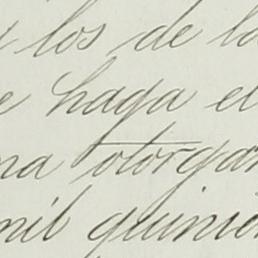 y los de la
e haga el
na otorgan
mil quinien